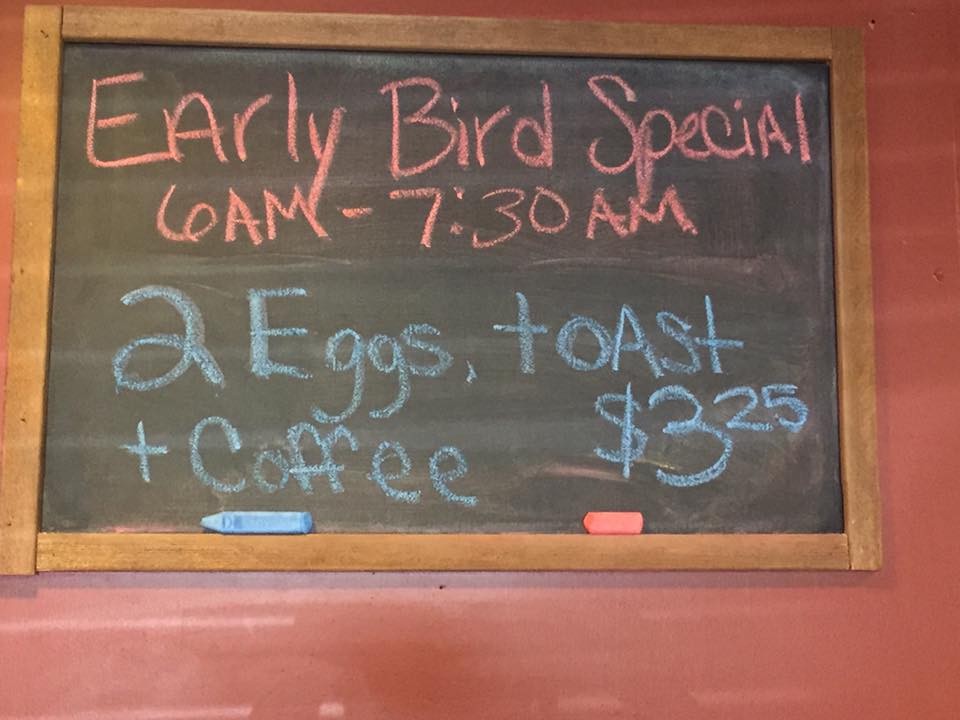 EArly Bird SpeciAl
6AM - 7:30 AM
2 Eggs, toAst
+ Coffee $3.25